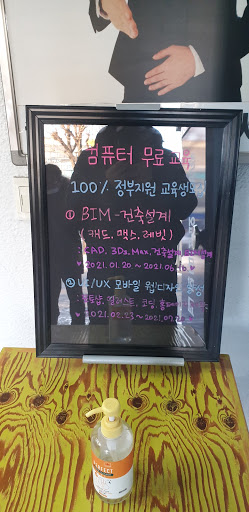 컴퓨터 무료 교육
100% 정부지원 교육생모집
① BIM-건축설계
(캐드, 맥스, 레빗)
CAD, 3Ds Max, 건축설계
♥ 2021.01.20 ~ 2021.06.
② UI/UX 모바일 웹디자인
: 포토샵, 일러스트, 코딩,
♥ 2021.02.23 ~ 2021.07.